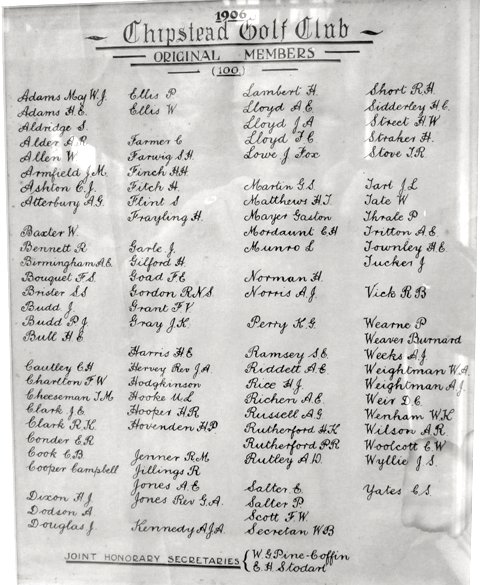 1906
Chipstead Golf Club
ORIGINAL MEMBERS
(100)
Adams May W.J.
Adams H.E.
Aldridge S.
Alder A.R.
Allen W.
Armfield J.M.
Ashton C.J.
Atterbury A.G.
Baxter W.
Bennett R
Birmingham A.E.
Bouquet F.S.
Brister S.S
Budd J.
Budd P.J.
Bull H.E.
Cautley C.H
Charlton F.W
Cheeseman T.M
Clark J.E
Clark R.K.
Conder E.R
Cook C.B
Cooper Campbell
Dixon H.J
Dodson A
Douglas J.
Ellis P
Ellis W
Farmer C
Farwig S.H
Finch H.H
Fitch H.
Flint S
Frayling H.
Garle J.
Gilford H.
Goad F.E
Gordon R.N.S.
Grant F.V
Gray J.K.
Harris H.E
Hervey Rev J.A.
Hodgkinson
Hooke U.L
Hooper H.R
Hovenden H.P
Jenner R.M
Jillings R
Jones A.E
Jones Rev G.A.
Kennedy A.J.A.
Lambert H.
Lloyd A.E
Lloyd J.A
Lloyd F.C
Lowe J Fox
Martin G.S.
Matthews H.T.
Mayer Gaston
Mordaunt E.H
Munro L
Norman H
Norris A.J.
Perry K.G.
Ramsey S.E.
Riddett A.E
Rice H.J.
Richen A.E.
Russell A.G.
Rutherford H.K
Rutherford P.R
Rutley A.D.
Salter E.
Salter P
Scott F.W
Secretan W.B
Short R.H.
Sidderley H.C.
Street H.W
Straker H.
Stove T.R.
Tart J.L
Tate W
Thrale P
Tritton A.E
Townley H.E.
Tucker J
Vick R.B
Wearne P
Weaver Burnard
Weeks A.J
Weightman W.A.
Weightman A.J.
Weir D.C.
Wenham W.H
Wilson A.R
Woolcott E.W
Wyllie J.S.
Yates C.S.
JOINT HONORARY SECRETARIES { W.G Pine-Coffin
E.H. Stodart